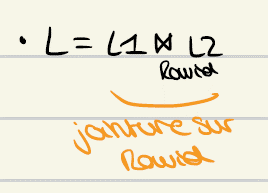 • L = L1 ⋈ L2
Rowid
jointure sur
Rowid